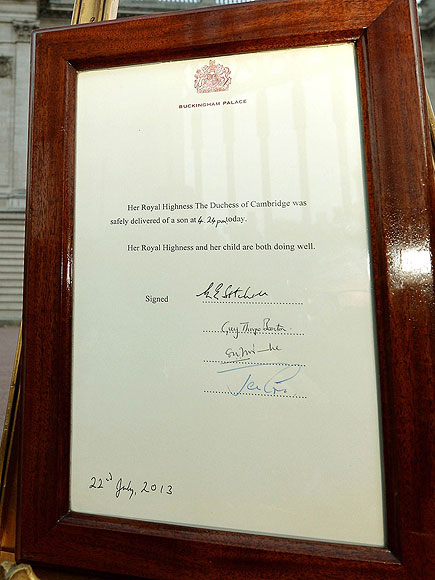 BUCKINGHAM PALACE
Her Royal Highness The Duchess of Cambridge was
safely delivered of a son at 4.24pm today.
Her Royal Highness and her child are both doing well.
Signed
Guy Thorpe Beeston
22nd July, 2013